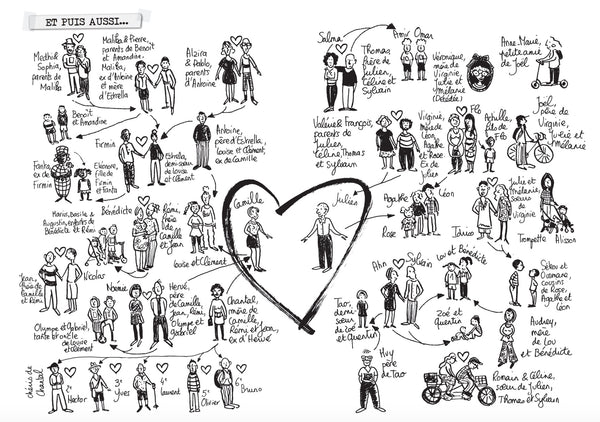 ET PUIS AUSSI...
Medhi &
Sophia,
parents de
Malika
Malika & Pierre,
parents de Benoît
et Amandine.
Malika,
ex d'Antoine
et mère
d'Estrella
Alzira
& Pablo,
parents
d'Antoine
Benoît
et Amandine
Firmin
Estrella,
demi-soeur
de Louise
et Clément
Antoine,
père d'Estrella,
Louise et Clément,
ex de Camille
Fanta,
ex de
Firmin
Eléonore,
fille de
Firmin
et Fanta
Marius, Basile &
Augustin, enfants de
Bénédicte et Rémi
Bénédicte
Rémi,
frère
de
Camille
et Jean
Louise et Clément
Jean,
frère de
Camille
et Rémi
Nicolas
Olympe et Gabriel,
tante et oncle
de Louise
et Clément
Noémie
Hervé,
père
de Camille,
Jean, Rémi,
Olympe et
Gabriel
Chantal,
mère de
Camille,
Rémi et Jean,
ex d'Hervé
chéris de
Chantal
2e
Hector
3e
Yves
4e
Laurent
5e
Olivier
6e
Bruno
Camille
Julien
Salma
Thomas,
frère de
Julien,
Céline et
Sylvain
Amy
Omar
Véronique,
mère de
Virginie,
Julie et
Mélanie
(Décédée)
Anne-Marie,
petite amie
de Joël
Valérie & François,
parents de
Julien,
Céline, Thomas
et Sylvain
Virginie,
mère de
Léon,
Agathe
et Rose
Ex de
Julien
Flo
Achille,
fils de
Flo
Joël,
père de
Virginie,
Julie et
Mélanie
Agathe
Léon
Rose
Julie et
Mélanie,
soeurs
de
Virginie
Idriss
Trompette
Alisson
Ahn
Sylvain
Lou et Bénédicte
Sékou et
Mérimane,
cousins
de Rose,
Agathe et
Léon
Tao,
demi-
soeur
de Zoé
et Quentin
Zoé et
Quentin
Audrey,
mère
de Lou
et Bénédicte
Huy
père
de Tao
Romain & Céline,
soeur de Julien,
Thomas et Sylvain